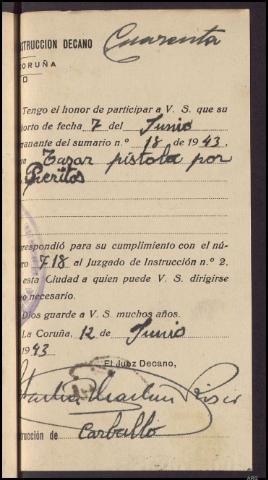 Cuarenta
STRUCCION DECANO
CORUÑA
O
Tengo el honor de participar a V. S. que su
orto de fecha 7 del Junio
anante del sumario n.º 18 de 1943,
Tazar pistola por
Peritos
respondió para su cumplimiento con el nú-
ro 718 al Juzgado de Instrucción n.º 2,
esta Ciudad a quien puede V. S. dirigirse
o necesario.
Dios guarde a V. S. muchos años.
La Coruña, 12 de Junio
1943
El Juez Decano,
trucción de Carballo